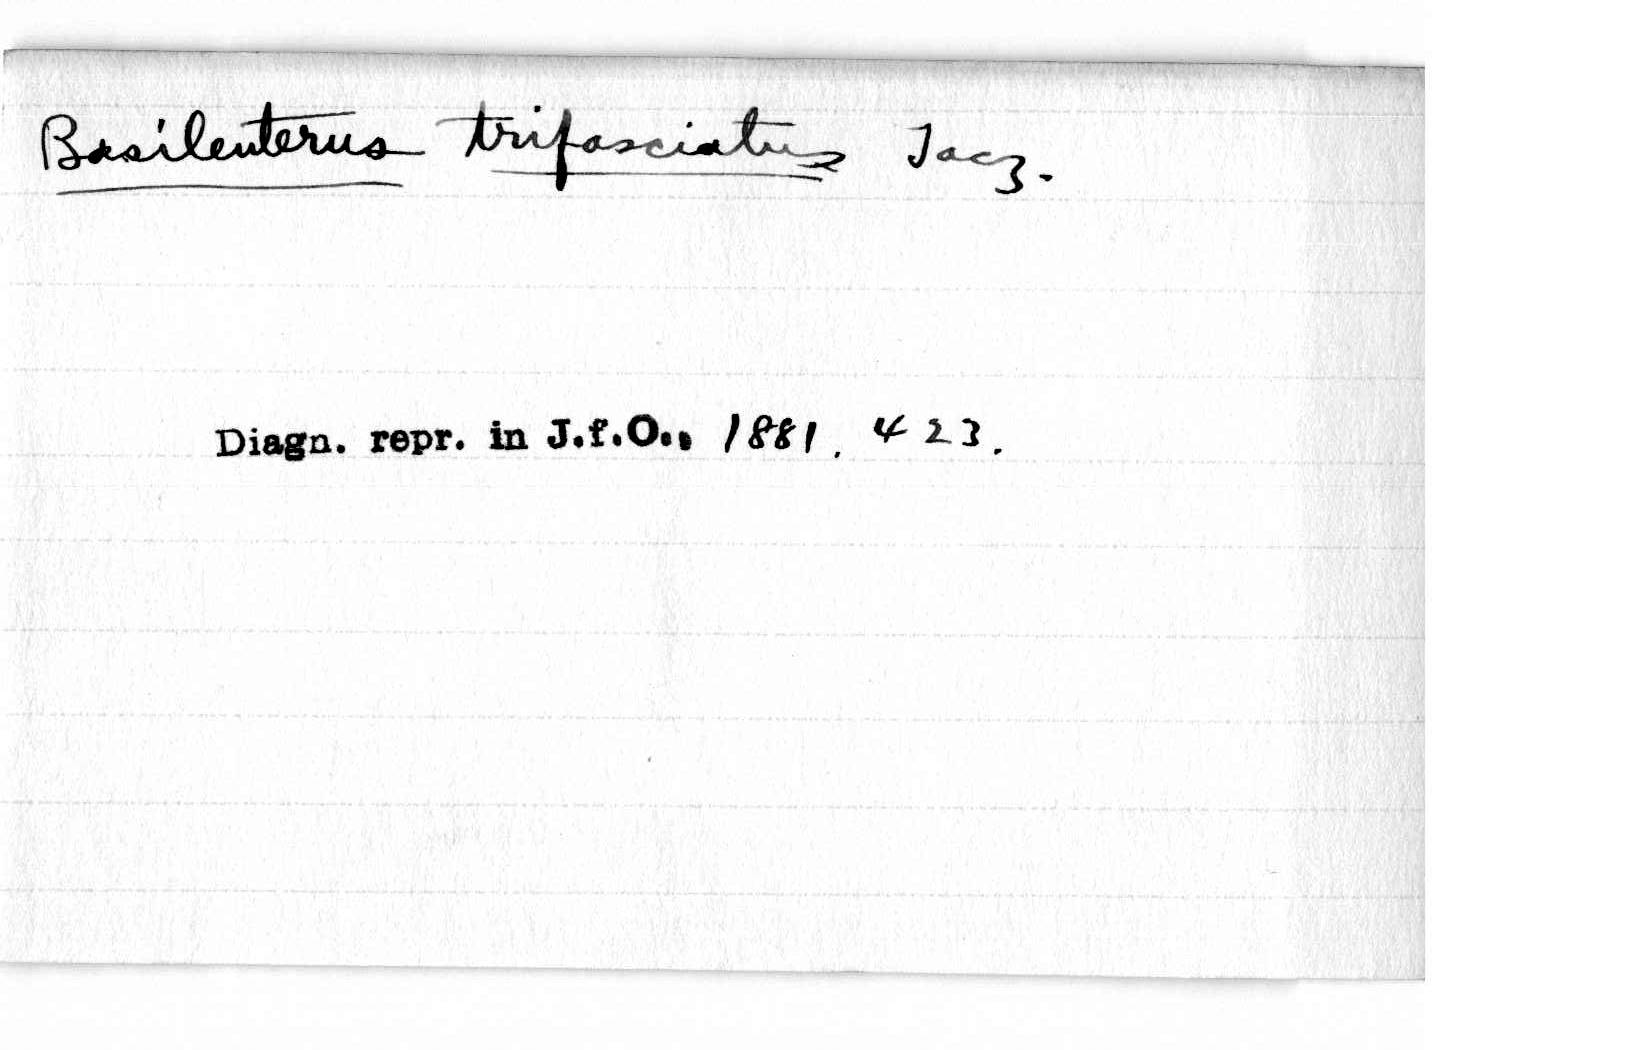 Basilenterus trifasciatus Tacz.
Diagn. repr. in J.f.O., 1881, 423.